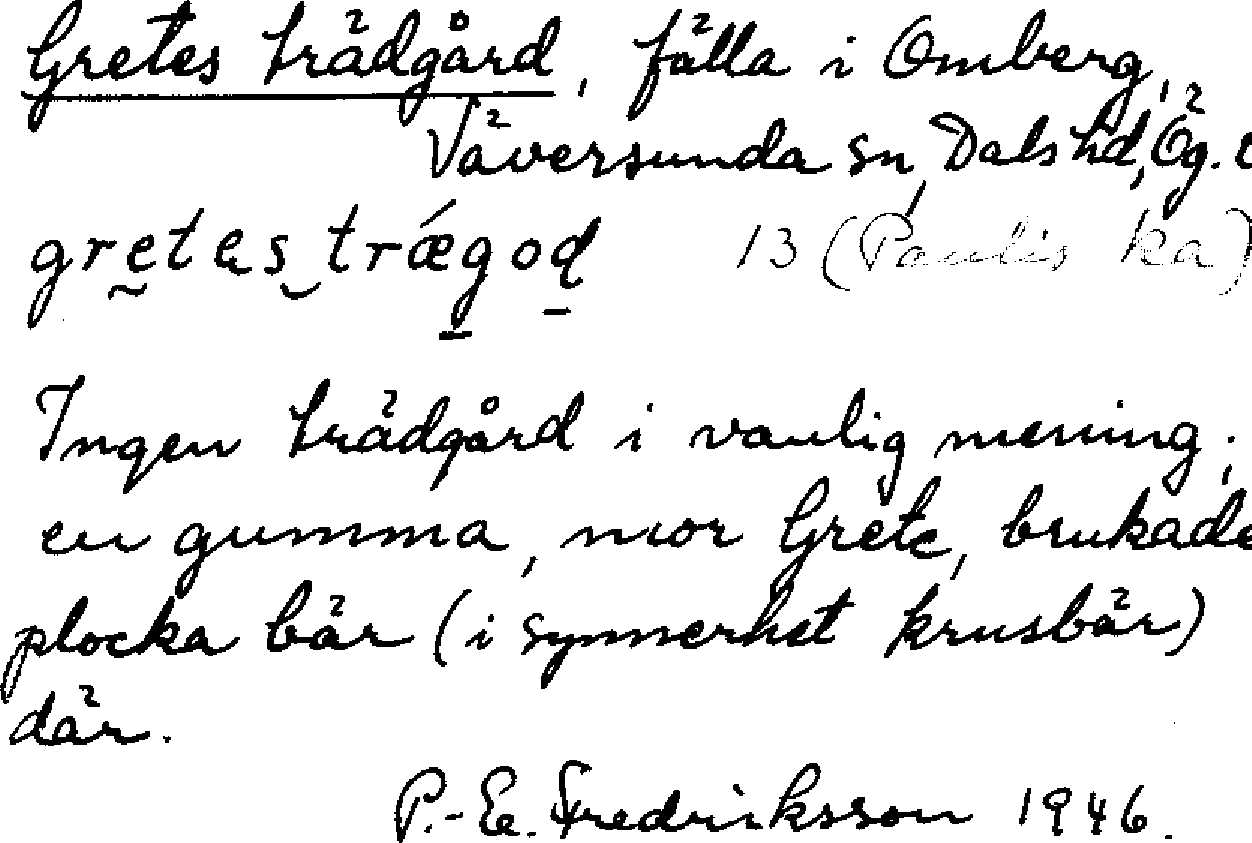 Gretes trädgård, fälla i Omberg,
Väversunda sn, Dals hd, Ög. l
gretes trǽgod 13 (Paulis ka)
Ingen trädgård i vanlig mening;
en gumma, mor Grete, brukade
plocka bär (i synnerhet krusbär)
där.
P.-E. Fredriksson 1946.